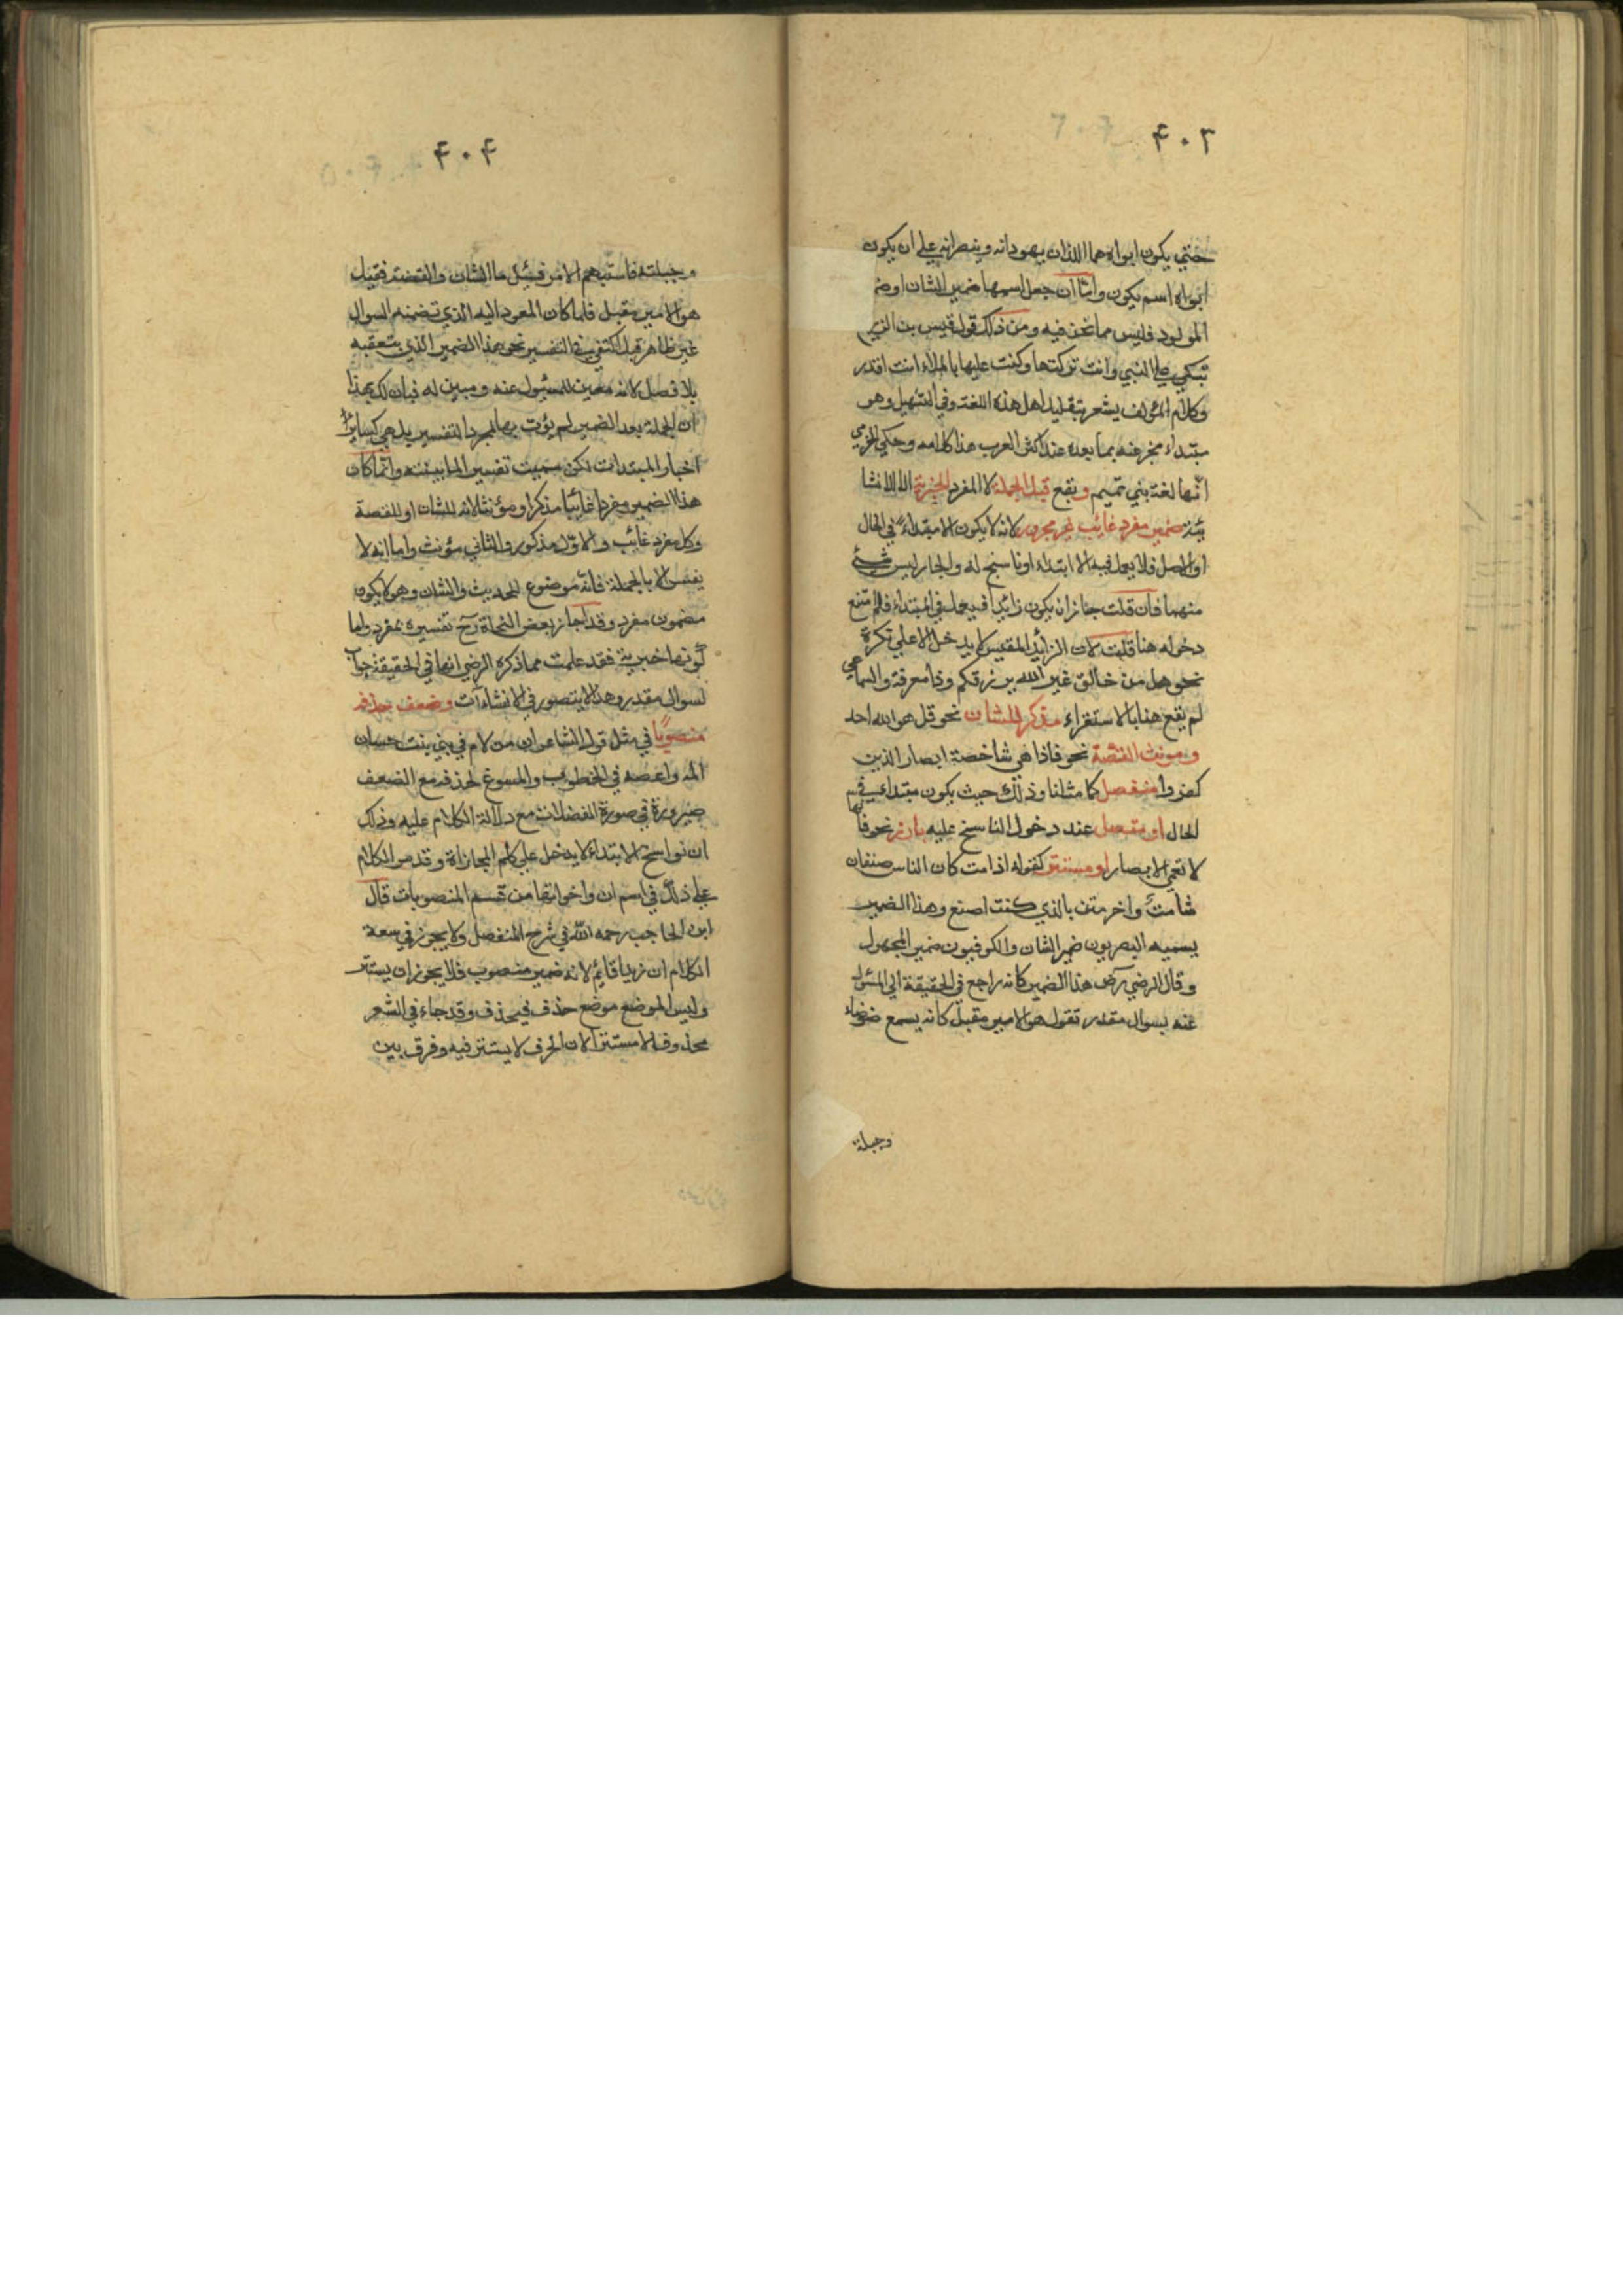 ۴۰۳
حتي يكون ابواه هما اللذان يهودانه وينصرانه علي ان يكون
ابواه اسم يكون واما ان جعل اسمها ضمير الشان او ضمير
المولود فليس مما نحن فيه ومن ذلك قول قيس بن
تبكي علي لبني وانت تركتها وكنت عليها بالملاء انت اقدر
وكلام المؤلف يشعر بتقليل اهل هذه اللغة وفي التسهيل وهو
مبتداء مخبر عنه بما بعده عند اكثر العرب هذا كلامه وحكي الجرمي
انها لغة بني تميم ويقع قبل الجملة لا المفرد الخبرية لا الانشا
ئية ضمير مفرد غائب غير مجرور لانه لا يكون الا مبتداء في الحال
او الاصل فلا يعمل فيه الا ابتداء او ناسخ له والجار ليس شيئ
منهما فان قلت جاز ان يكون زائدا فيعمل في المبتداء فلم متنع
دخوله هنا قلت لان الزائد المقيس لا يدخل الا علي نكرة
نحو هل من خالق غير الله يرزقكم وذا معرفة والسماعي
لم يقع هنا بالاستقراء مذكر للشان نحو قل هو الله احد
ومونث للقصة نحو فاذا هي شاخصة ابصار الذين
كفروا منفصل كما مثلنا وذلك حيث يكون مبتداء في
الحال او متصل عند دخول الناسخ عليه بارز نحو فانها
لا تعمي الابصار او مستتر كقوله اذا مت كان الناس صنفان
شامت واخر مثن بالذي كنت اصنع وهذا الضمير
يسميه البصريون ضمير الشان والكوفيون ضمير المجهول
وقال الرضي رض هذا الضمير كانه راجع في الحقيقة الي المسئول
عنه بسوال مقدر تقول هو الامير مقبل كانه يسمع ضوضاء
وجبلة
۴۰۴
وجبلته فاستبهم الامر فسئل ما الشان والقصة فقيل
هو الامير مقبل فلما كان المعود اليه الذي تضمنه السوال
غير ظاهر قبل اكتفي في التفسير نحو هذا الضمير الذي يتعقبه
بلا فصل لانه معين للمسئول عنه ومبين له فبان لك بهذا
ان الجملة بعد الضمير لم يؤت بها لمجرد التفسير بل هي كساير
اخبار المبتدات لكن سميت تفسيرا لما بينته وانما كان
هذا الضمير مفردا غائبا مذكرا او مؤنثا لانه للشان او للقصة
وكل مفرد غائب والاول مذكور والثاني مؤنث واما انه لا
يفسر الا بالجملة فانه موضوع للحديث والشان وهو لا يكون
مضمون مفرد وقد اجاز بعض النحاة رح تفسيره بمفرد واما
كونها خبرية فقد علمت مما ذكره الرضي انها في الحقيقة جواب
لسوال مقدر وهذا لا يتصور في الانشاءات وضعف حذفه
منصوبا في مثل قول الشاعر ان من لام في بني بنت حسان
المه واعصه في الخطوب والمسوغ لحذفه مع الضعف
صيرورة في صورة الفضلات مع دلالة الكلام عليه وذلك
ان نواسخ الابتداء لا يدخل علي كلم المجازاة وقد مر الكلام
علي ذلك في اسم ان واخواتها من قسم المنصوبات قال
ابن الحاجب رحمه الله في شرح المنفصل ولا يجوز في سعة
الكلام ان زيد قائم لانه ضمير منصوب فلا يجوز ان يستتر
وليس الموضع موضع حذف فيحذف وقد جاء في الشعر
محذوفا لا مستترا لان الحرف لا يستتر فيه وفرق بين